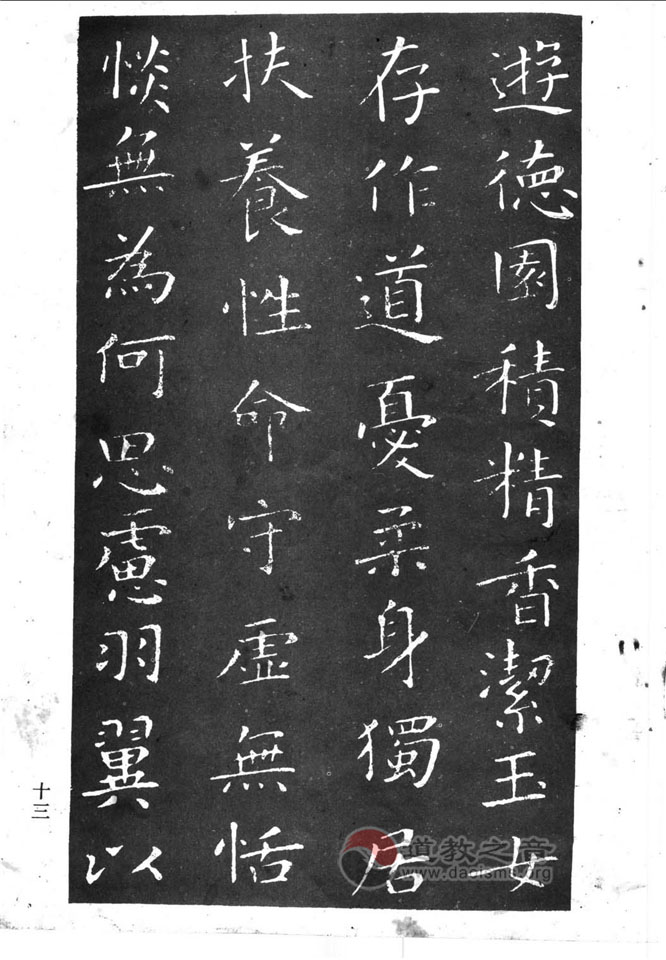 遊德園積精香潔玉女
存作道憂柔身獨居
扶養性命守虛無恬
惔無為何思慮羽翼以
十三
道教之音
www.daoisms.org